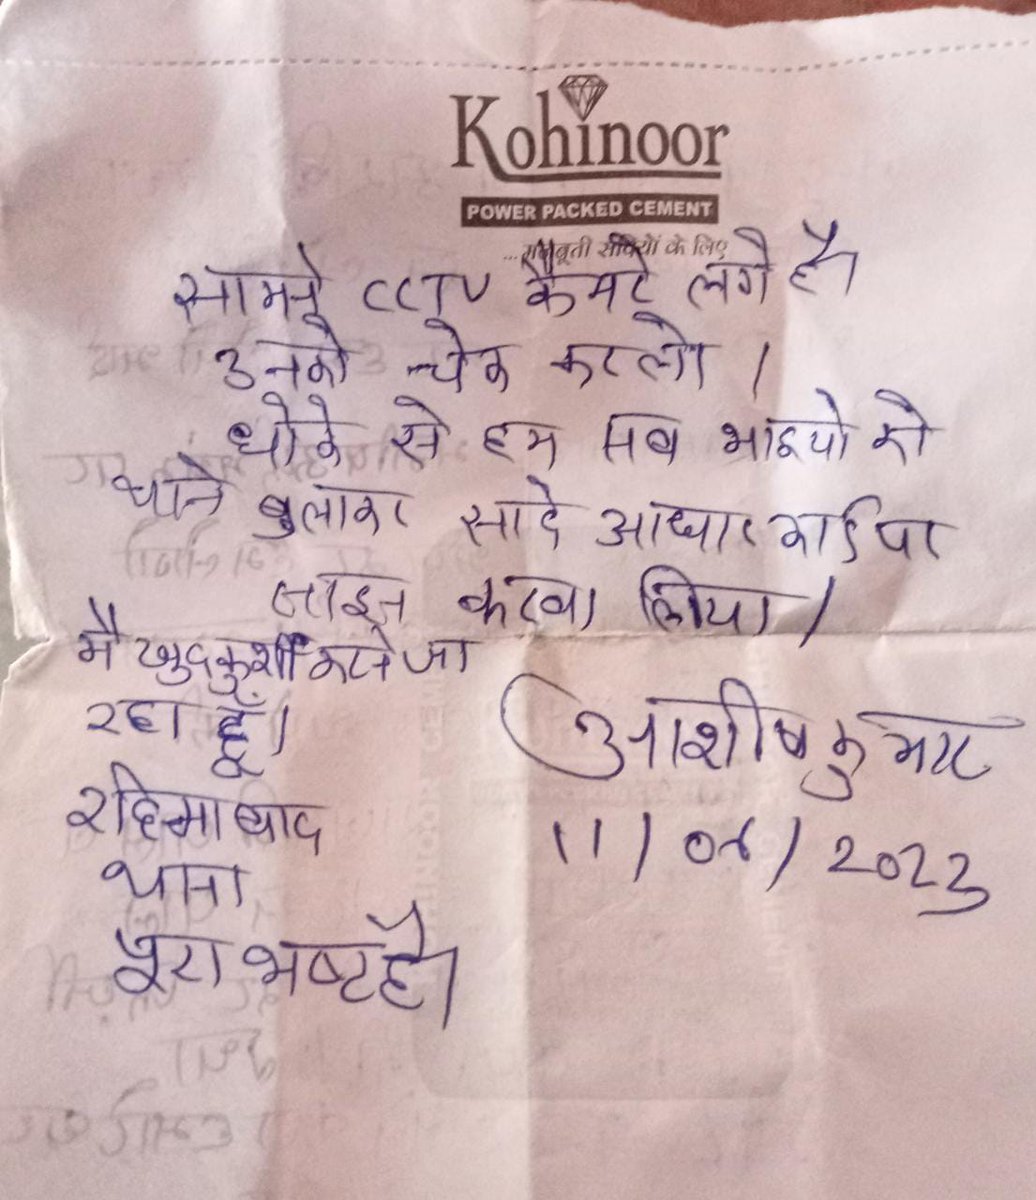 Kohinoor
POWER PACKED CEMENT
...मजबूती सदियों के लिए
सामने CCTV कैमरे लगे है।
उनको चेक करलो।
धोके से हम सब भाइयो को
थाने बुलाकर सादे आधार कार्ड पर
साइन करवा लिया।
मै खुदकुशी करने जा
रहा हूँ।
आशीष कुमार
11/06/2023
रहिमाबाद
थाना
पूरा भष्ट है।